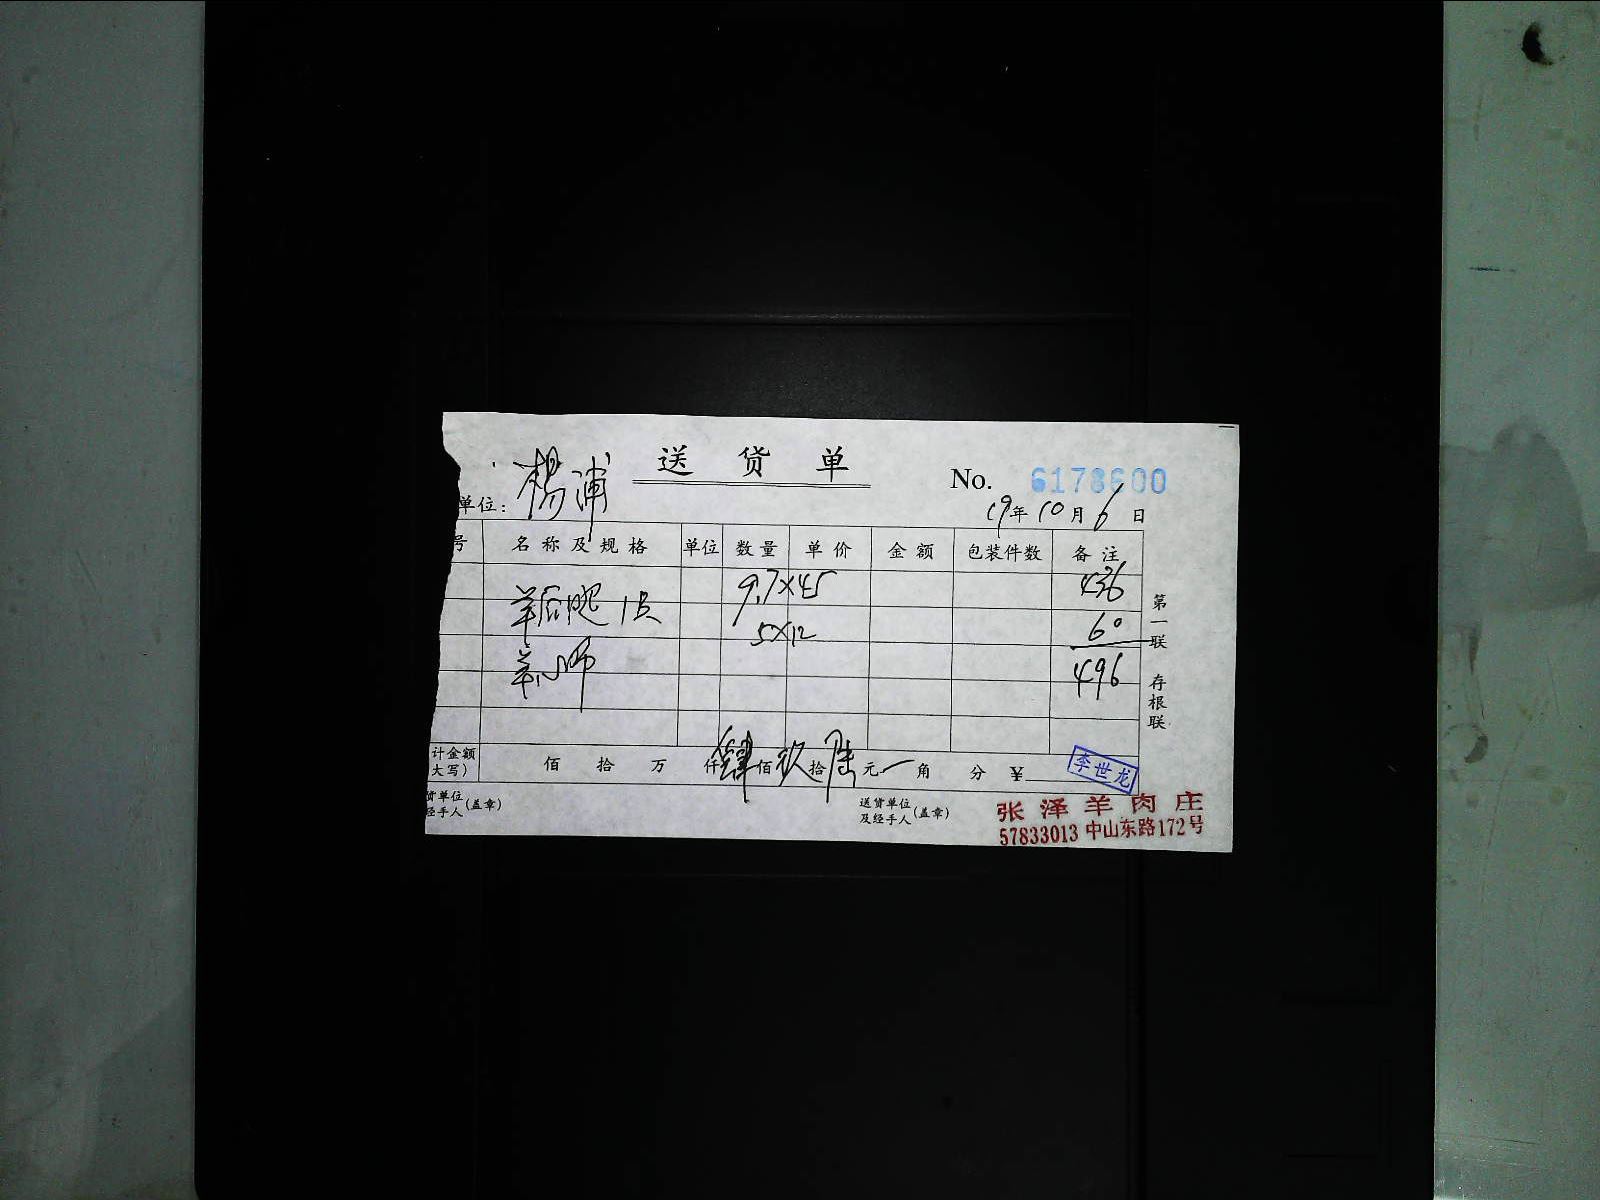 送货单
No. 6178600
单位: 杨浦
19年10月6日
号 名称及规格 单位 数量 单价 金额 包装件数 备注
羊后腿 1只 9.7×45 436
羊 5×12 60
496
第一联 存根联
计金额 大写) 佰 拾 万 仟肆佰玖拾陆元 角 分 ¥
李世龙
货单位 经手人(盖章) 送货单位 及经手人(盖章)
张泽羊肉庄
57833013 中山东路172号